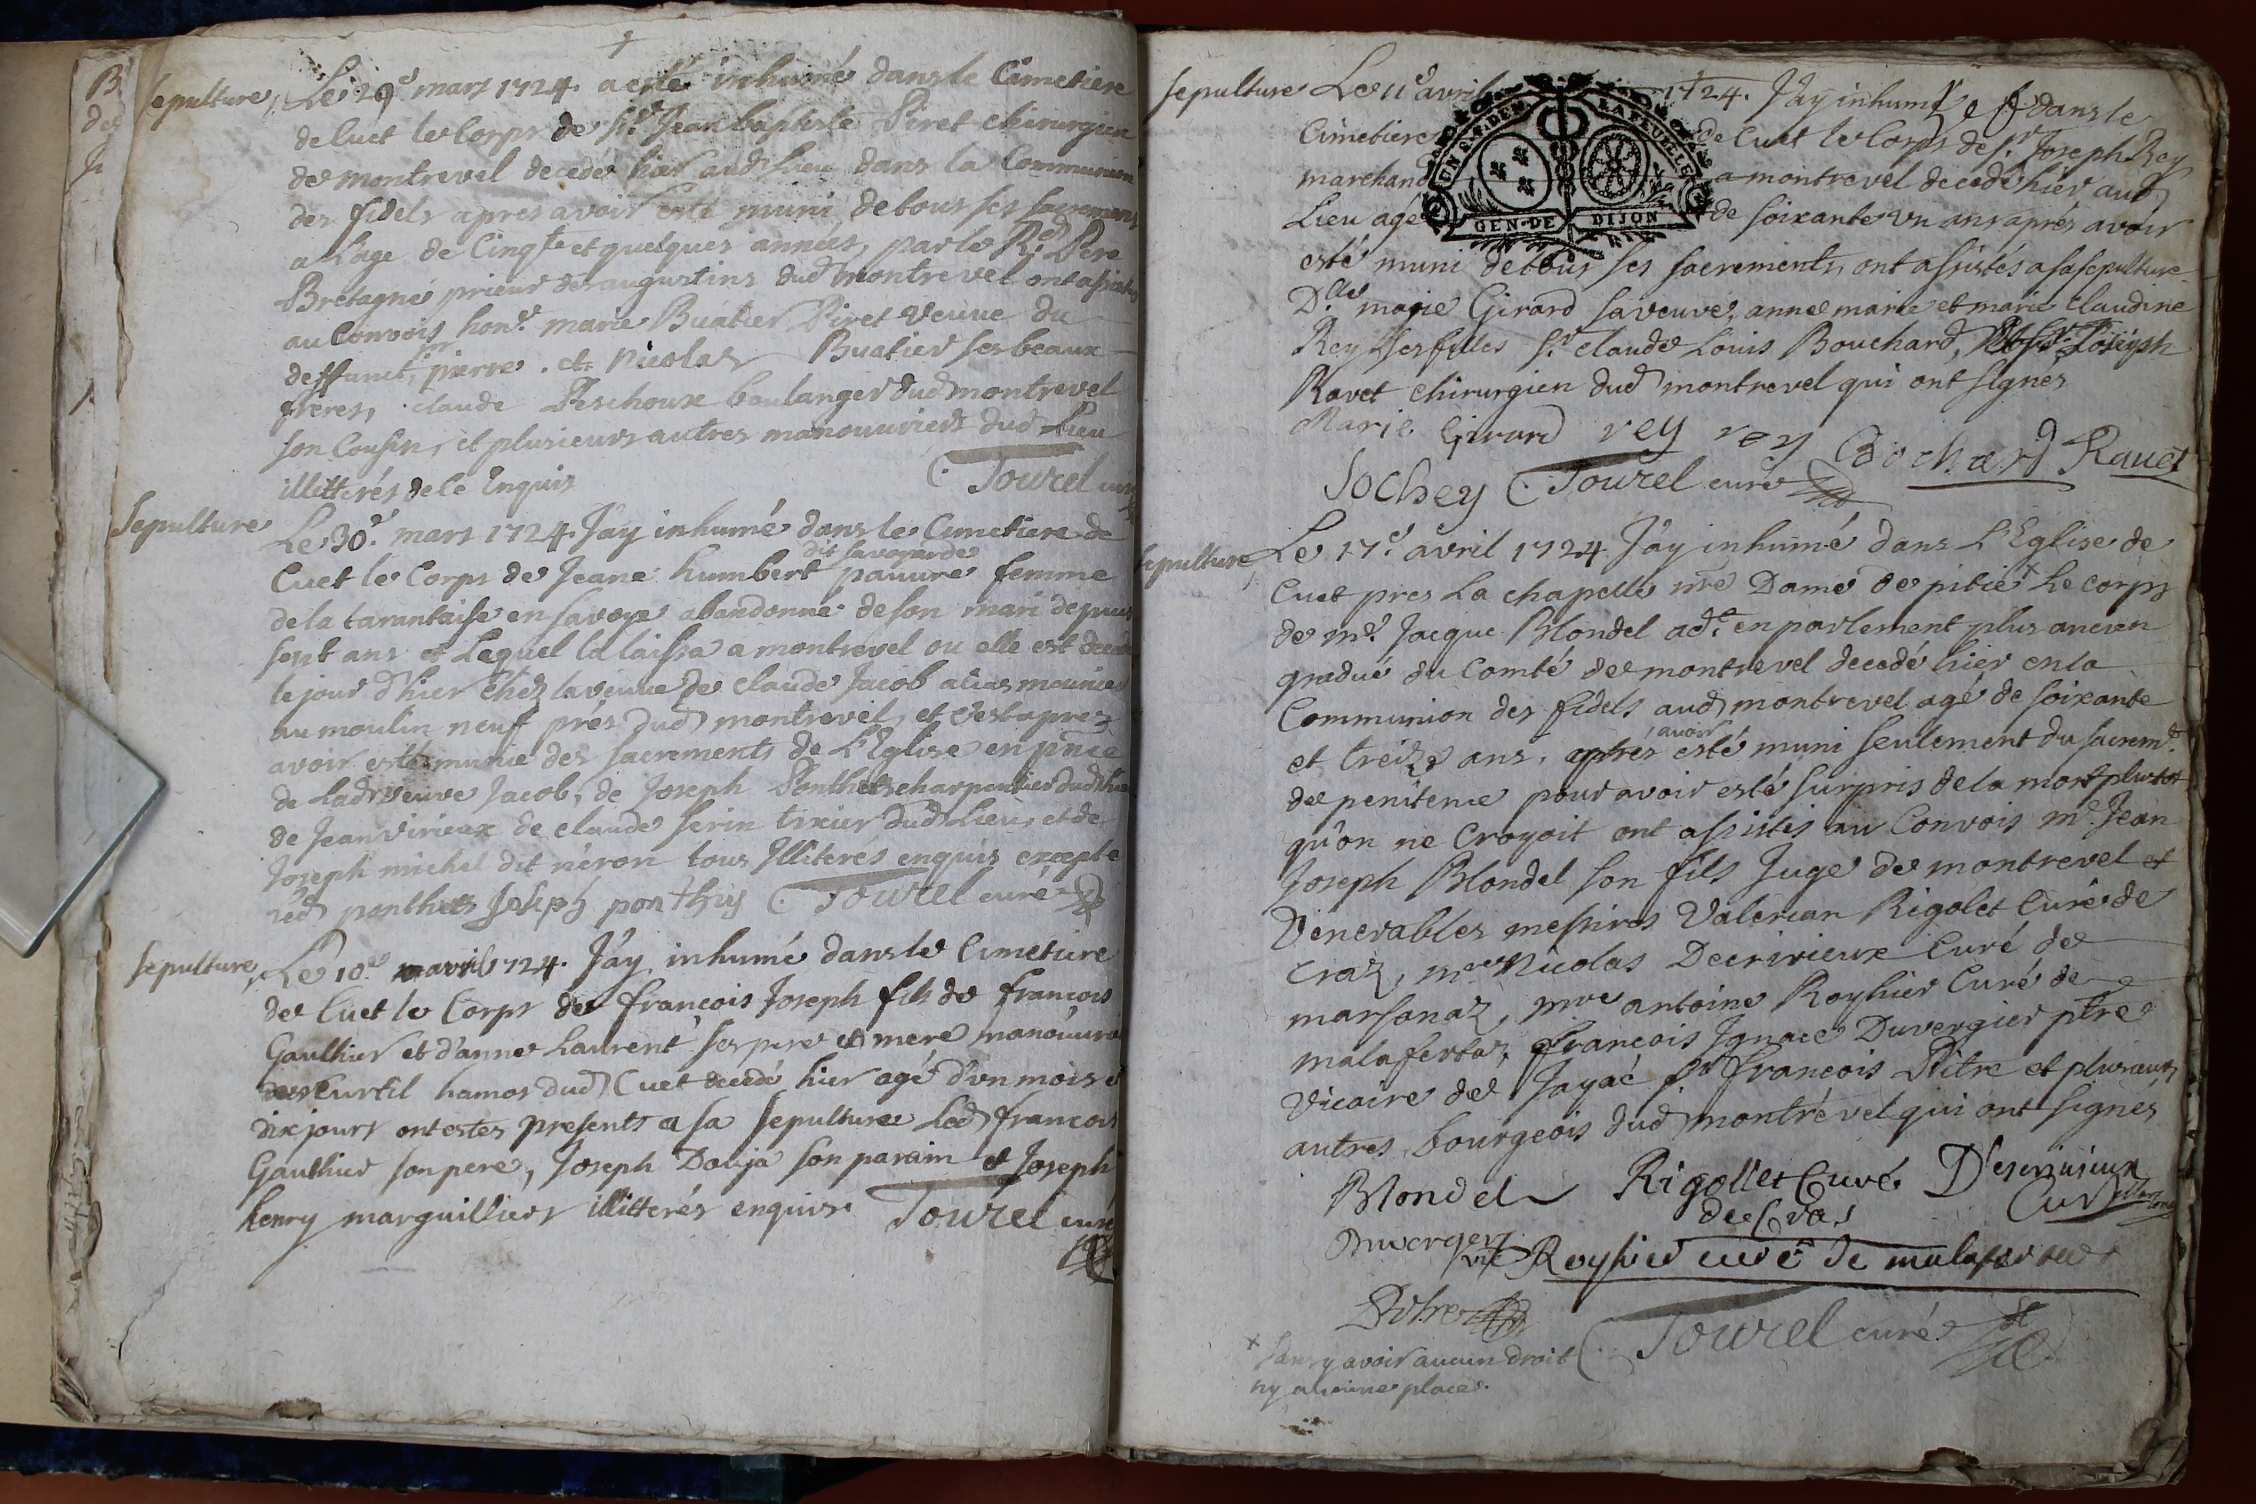 sepulture Le 29e mars 1724. a esté inhumé dans le Cimetiere
de Cuet le Corps de Sr. Jean baptiste Piret chirurgien
de montrevel decedé hier aud lieu dans la Communion
des fidels apres avoir esté muni de tous ses sacremens
a l'age de Cinqte et quelques années, par le Rd. Pere
Bretagne prieur des augustins dud montrevel ont assistes
au Convois honte. marie Buatier Piret veuve du
deffunct, pierre et Nicolas Buatier ses beaux
freres, claude Peschoux boulanger dud montrevel
son Cousin, et plusieurs autres manouuriers dud Lieu
illitterés de ce Enquis Tourel curé
Sepulture Le 30e. mars 1724. J'ay inhumé dans le Cimetiere de
dit savoyarde
Cuet le Corps de Jeane humbert pauure femme
de la tarantaise en savoye abandonné de son mari depuis
sept ans et Lequel la laissa a montrevel ou elle est decedé
le jour d'hier chez la veuve de claude Jacob alias mounier
au moulin neuf prés dud montrevel, et c'est aprez
avoir esté munie des sacrements de L'Eglise en pnce
de Lad veuve Jacob, de Joseph Ponthus charpentier dud lieu
de Jean virieux de claude serin tixier dud Lieu, et de
Joseph michel dit neron tous Illiterés enquis excepté
led ponthus Joseph ponthus Tourel curé
sepulture Le 10e. avril 1724. J'ay inhumé dans le Cimetiere
de Cuet le Corps de francois Joseph fils de francois
Gauthier et d'anne Laurent ses pere et mere manouure
de Curtil hamos dud Cuet decedé hier agé d'un mois et
dix jours ont estes presents a sa sepulture Led francois
Gauthier son pere, Joseph Douja son parain et Joseph
henry marguilliers illitterés enquis. Tourel curé
sepulture Le 11e avril 1724. J'ay inhumé dans le
Cimetiere de Cuet le Corps de sr. Joseph Rey
marchand a montrevel decedé hier aud
Lieu agé de soixante un ans aprés avoir
UN S. 4. DEN. LA FEUILLE
GEN. DE DIJON
esté muni de tous ses sacrements, ont assistés a sa sepulture
Dlle marie Girard sa veuve, anne marie et marie claudine
Rey ses filles sr. claude Louis Bouchard, Joseph
Ravet chirurgien dud montrevel qui ont signés
Marie Girard rey rey Bochard Rauet
Jochey Tourel curé
sepulture Le 17e. avril 1724. J'ay inhumé dans L'Eglise de
Cuet pres La chapelle nre Dame de pitié x Le corps
de me. Jacque Blondel adt. en parlement plus ancien
gradué du Comté de montrevel decedé hier en la
Communion des fidels aud montrevel agé de soixante
avoir
et treize ans, aprés esté muni seulement du sacremt.
de penitence pour avoir esté surpris de la mort plutot
qu'on ne Croyoit ont assistés au Convois me. Jean
Joseph Blondel son fils Juge de montrevel et
Venerables messires Valerian Rigolet Curé de
Craz, mre Nicolas Decrivieux Curé de
marsonaz, mre antoine Royhier Curé de
malafertaz, francois Ignace Duvergier ptre
Vicaire de Jayac sr francois Pitre et plusieurs
autres bourgeois dud montrével qui ont signés
Blondel Rigollet Curé D'escriuieux
de Cras Curé
Duvergier
vic Royhier curé de malafertaz
Pitre
Tourel curé
x sans y avoir aucun droit
ny aucune place.